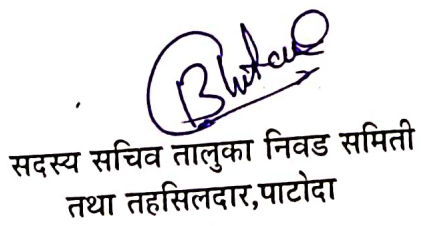 सदस्य सचिव तालुका निवड समिती
तथा तहसिलदार,पाटोदा